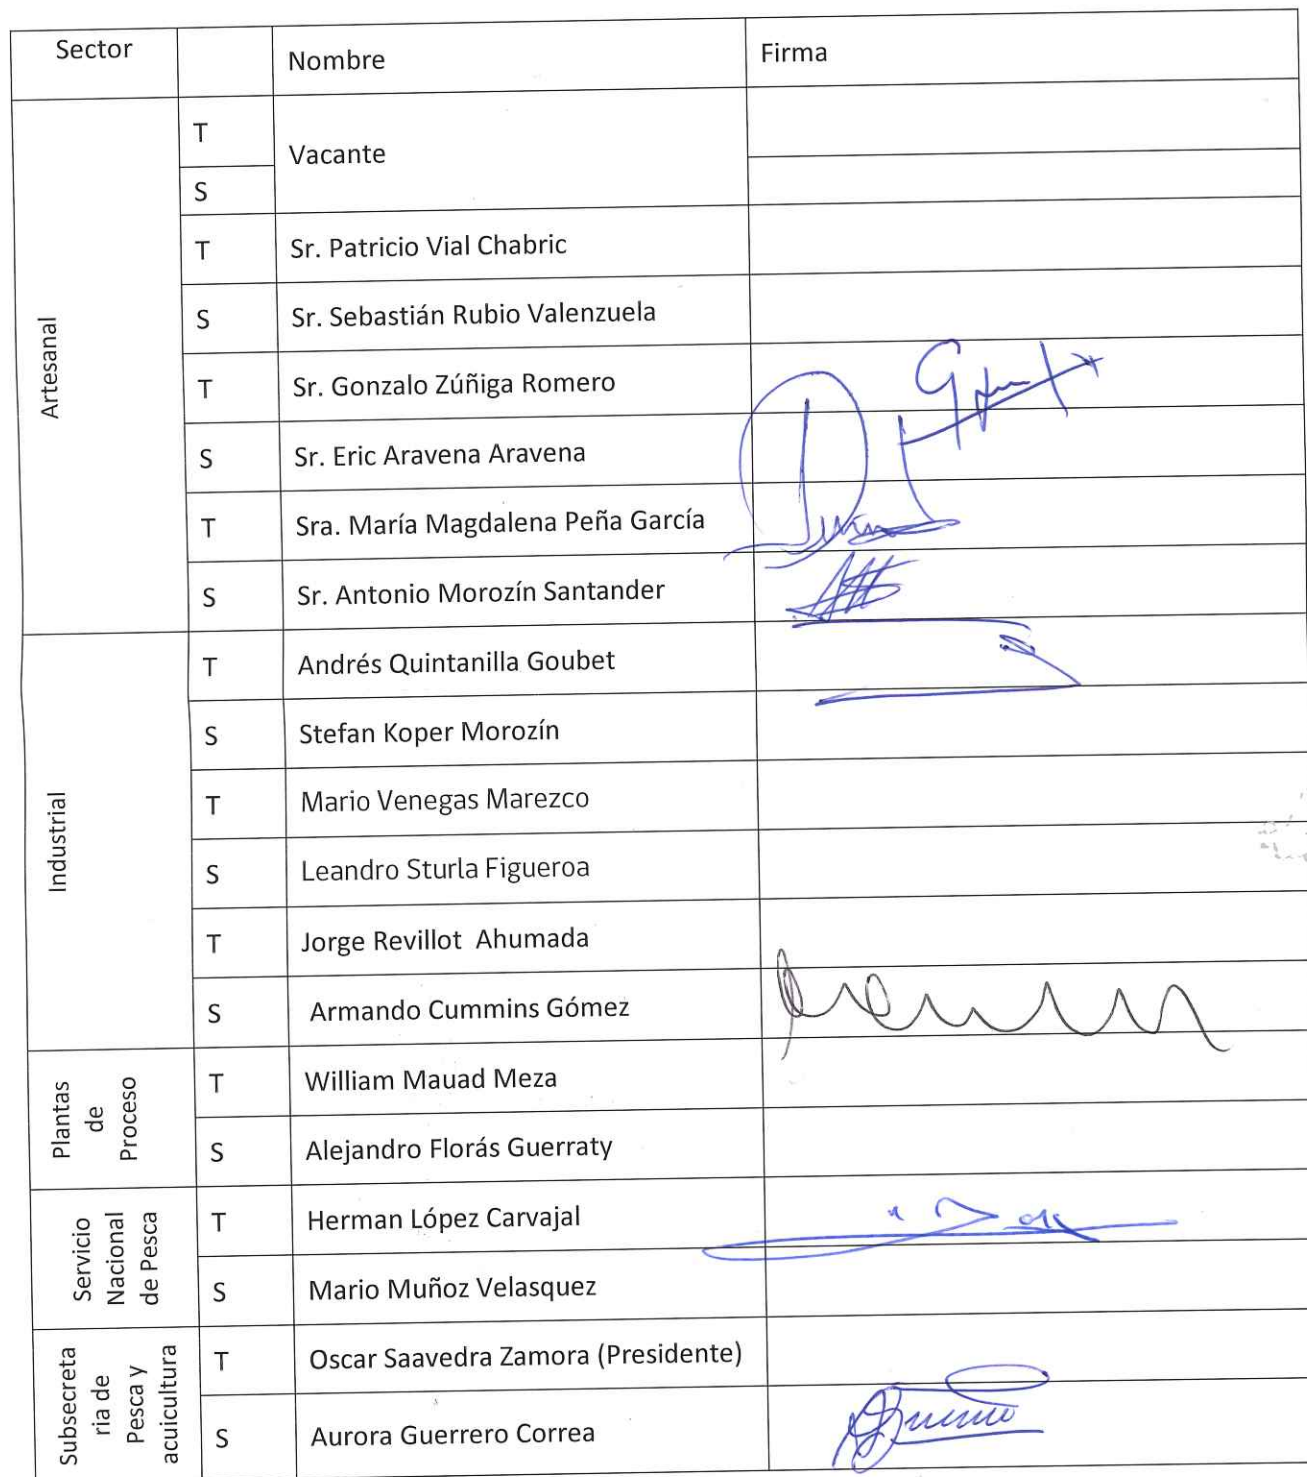 Sector Nombre Firma
Artesanal
T
Vacante
S
T Sr. Patricio Vial Chabric
S Sr. Sebastián Rubio Valenzuela
T Sr. Gonzalo Zúñiga Romero
S Sr. Eric Aravena Aravena
T Sra. María Magdalena Peña García
S Sr. Antonio Morozín Santander
Industrial
T Andrés Quintanilla Goubet
S Stefan Koper Morozín
T Mario Venegas Marezco
S Leandro Sturla Figueroa
T Jorge Revillot Ahumada
S Armando Cummins Gómez
Plantas
de
Proceso
T William Mauad Meza
S Alejandro Florás Guerraty
Servicio
Nacional
de Pesca
T Herman López Carvajal
S Mario Muñoz Velasquez
Subsecreta
ria de
Pesca y
acuicultura
T Oscar Saavedra Zamora (Presidente)
S Aurora Guerrero Correa